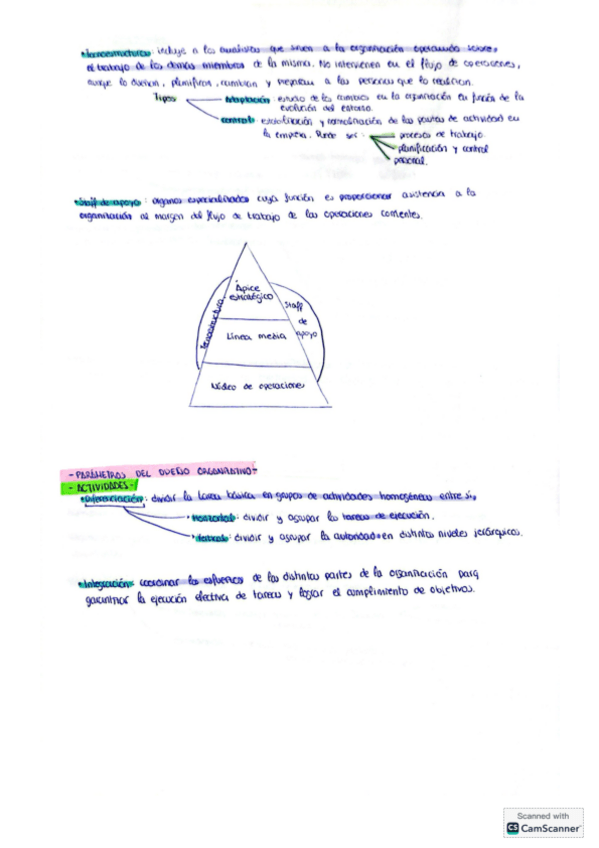 • Tecnoestructura: incluye a los analistas que sirven a la organización operando sobre
el trabajo de los demás miembros de la misma. No intervienen en el flujo de operaciones,
aunque lo diseñan, planifican, cambian y preparan a las personas que lo realizan.
Tipos
Adaptación: estudio de los cambios en la organización en función de la
evolución del entorno.
control: estabilización y normalización de las pautas de actividad en
la empresa. Puede ser:
procesos de trabajo
planificación y control
personal.
• Staff de apoyo: órganos especializados cuya función es proporcionar asistencia a la
organización al margen del flujo de trabajo de las operaciones corrientes.
Ápice
estratégico
Tecnoestructura
Staff
de
apoyo
Línea media
Núcleo de operaciones
- PARÁMETROS DEL DISEÑO ORGANIZATIVO -
- ACTIVIDADES -
• Diferenciación: dividir la tarea básica en grupos de actividades homogéneas entre sí.
• Horizontal: dividir y agrupar las tareas de ejecución.
• Vertical: dividir y agrupar la autoridad en distintos niveles jerárquicos.
• Integración: coordinar los esfuerzos de las distintas partes de la organización para
garantizar la ejecución efectiva de tareas y lograr el cumplimiento de objetivos.
Scanned with
CS CamScanner